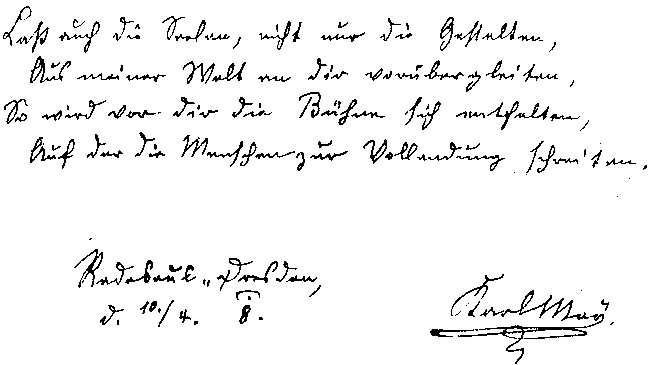 Laß auch die Seelen, nicht nur die Gestalten,
Aus meiner Welt an dir vorübergleiten,
So wird vor dir die Bühne sich entfalten,
Auf der die Menschen zur Vollendung schreiten.
Radebeul-Dresden,
d. 10./4. 8.
Karl May.